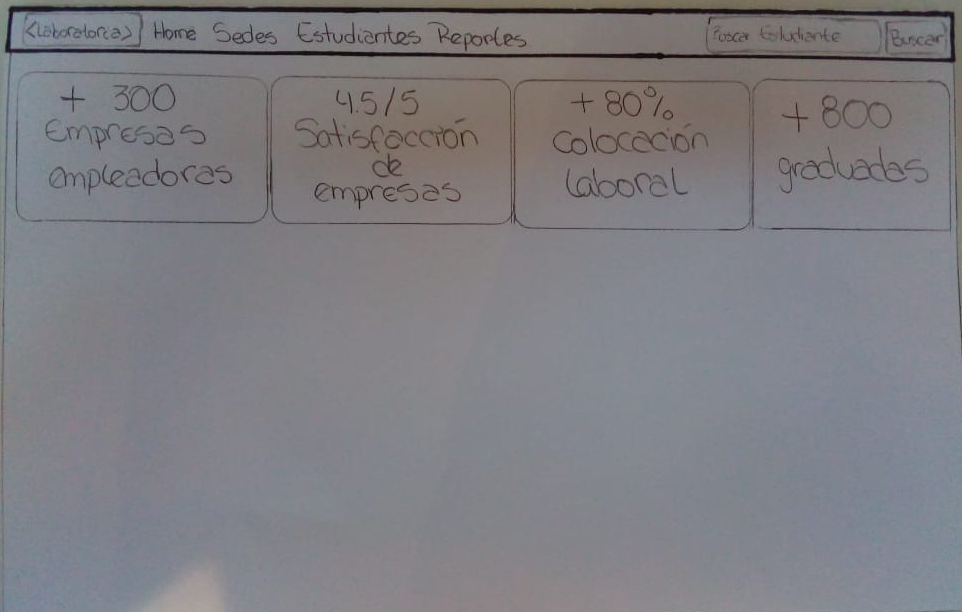 <Laboratoria> Home Sedes Estudiantes Reportes Buscar Estudiante Buscar
+ 300
Empresas
empleadoras
4.5/5
Satisfacción
de
empresas
+ 80%
Colocación
laboral
+ 800
graduadas